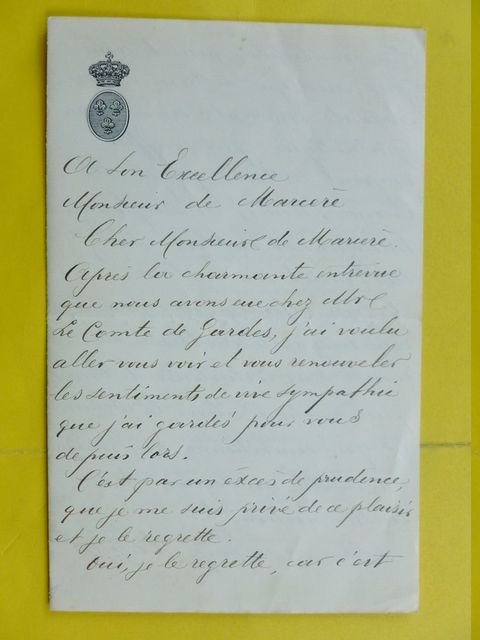 A Son Excellence
Monsieur de Marcère
Cher Monsieur de Marcère.
Après la charmante entrevue
que nous avons eue chez Mr
Le Comte de Gardes, j'ai voulu
aller vous voir et vous renouveler
les sentiments de vive sympathie
que j'ai gardés pour vous
depuis lors.
C'est par un éxcès de prudence,
que je me suis privé de ce plaisir
et je le regrette.
Oui, je le regrette, car c'est